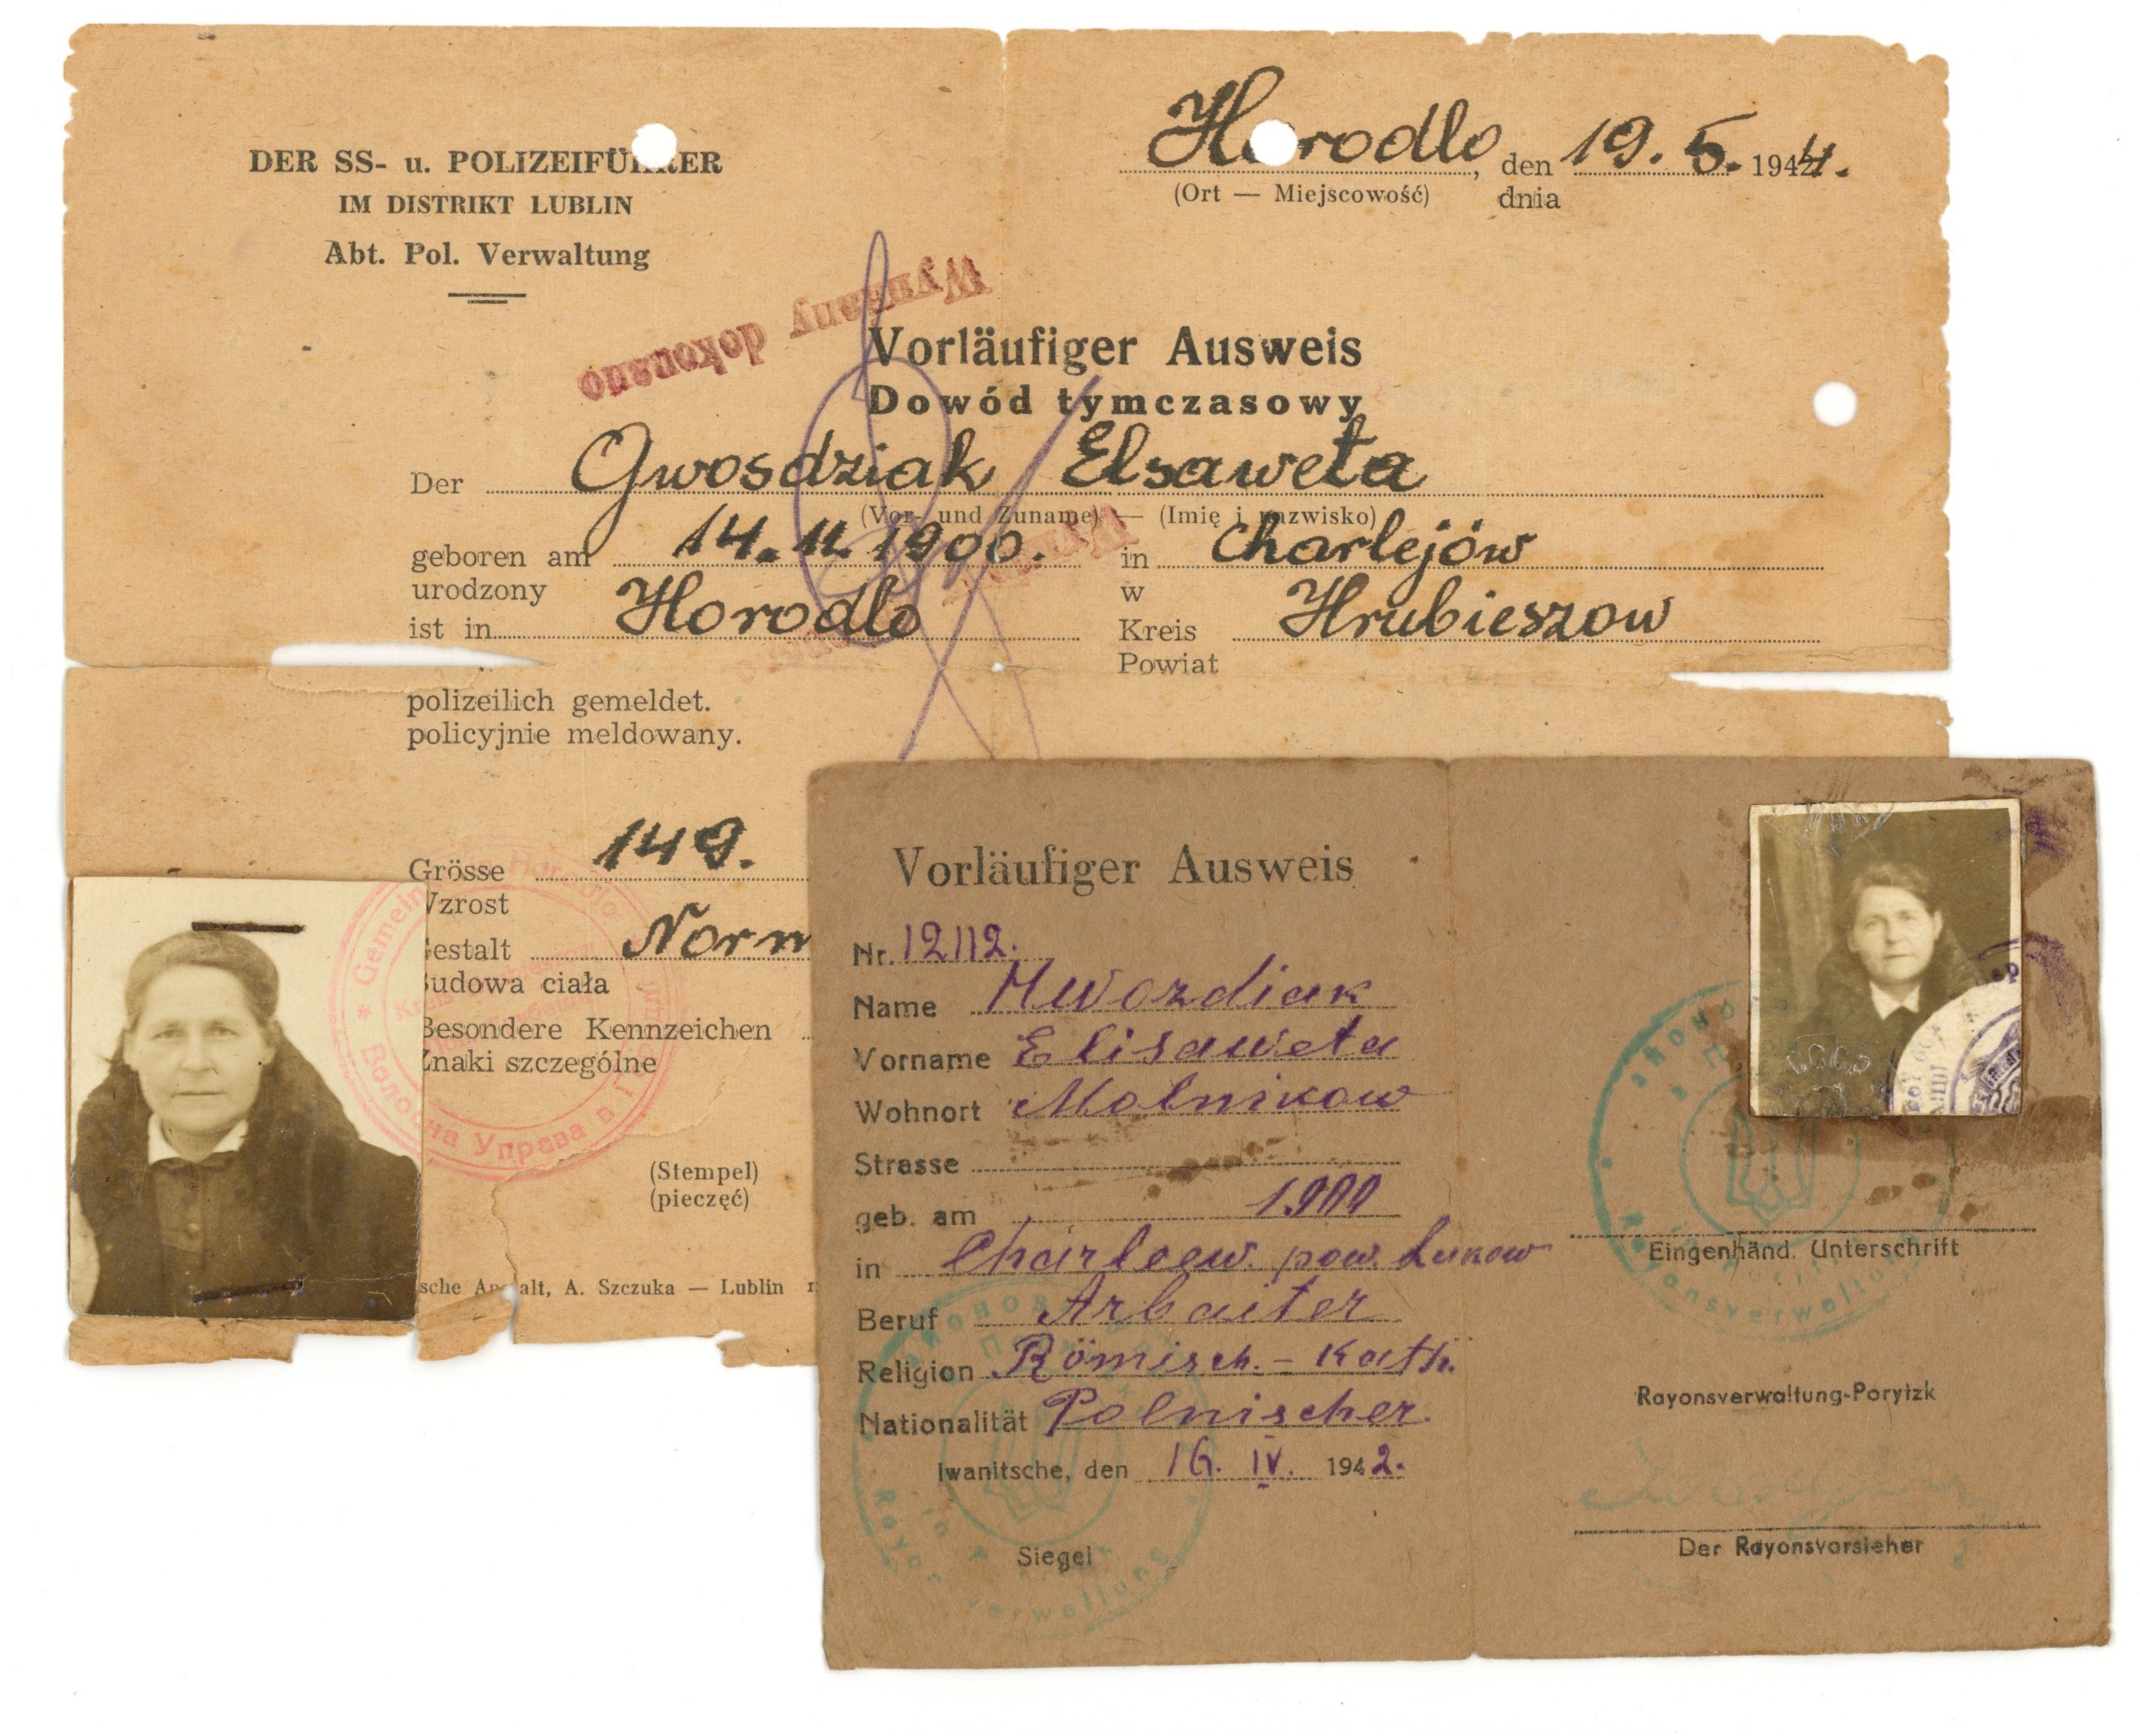 DER SS- u. POLIZEIFÜHRER
IM DISTRIKT LUBLIN
Abt. Pol. Verwaltung
Horodlo, den 19. 5. 1944.
(Ort — Miejscowość) dnia
Wymiany dokonano
Vorläufiger Ausweis
Dowód tymczasowy
Der Gwosdziak Elsaweta
(Vor- und Zuname) — (Imię i nazwisko)
geboren am 14. 11. 1900. in Charlejów
urodzony w
ist in Horodlo Kreis Hrubieszow
Powiat
polizeilich gemeldet.
policyjnie meldowany.
Grösse 149.
Wzrost
Gestalt Norm
Budowa ciała
Besondere Kennzeichen
Znaki szczególne
Управа в
(Stempel)
(pieczęć)
alt, A. Szczuka — Lublin
Vorläufiger Ausweis
Nr. 12112.
Name Hwozdiak
Vorname Elisaweta
Wohnort Molnikow
Strasse
geb. am 1900
in Charleew. pow. Lukow
Beruf Arbaiter
Religion Römisch.-Kath.
Nationalität Polnischer.
Iwanitsche, den 16. IV. 1942.
Siegel
Eingenhänd. Unterschrift
Rayonsverwaltung-Porytzk
Der Rayonsvorsteher